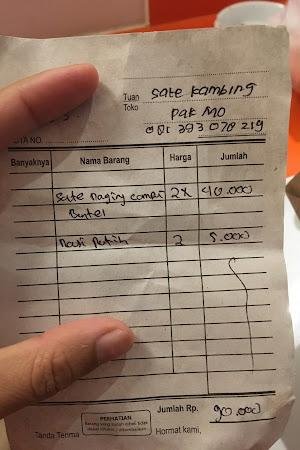 Tuan Sate Kambing
Toko Pak Mo
081 393 078 219
TA NO.
Banyaknya Nama Barang Harga Jumlah
Sate Daging 2x 40.000
Buntel
Nasi Putih 2 5.000
Jumlah Rp. 90.000
PERHATIAN
Barang yang sudah dibeli tidak
dapat ditukar / dikembalikan
Tanda Terima Hormat kami,